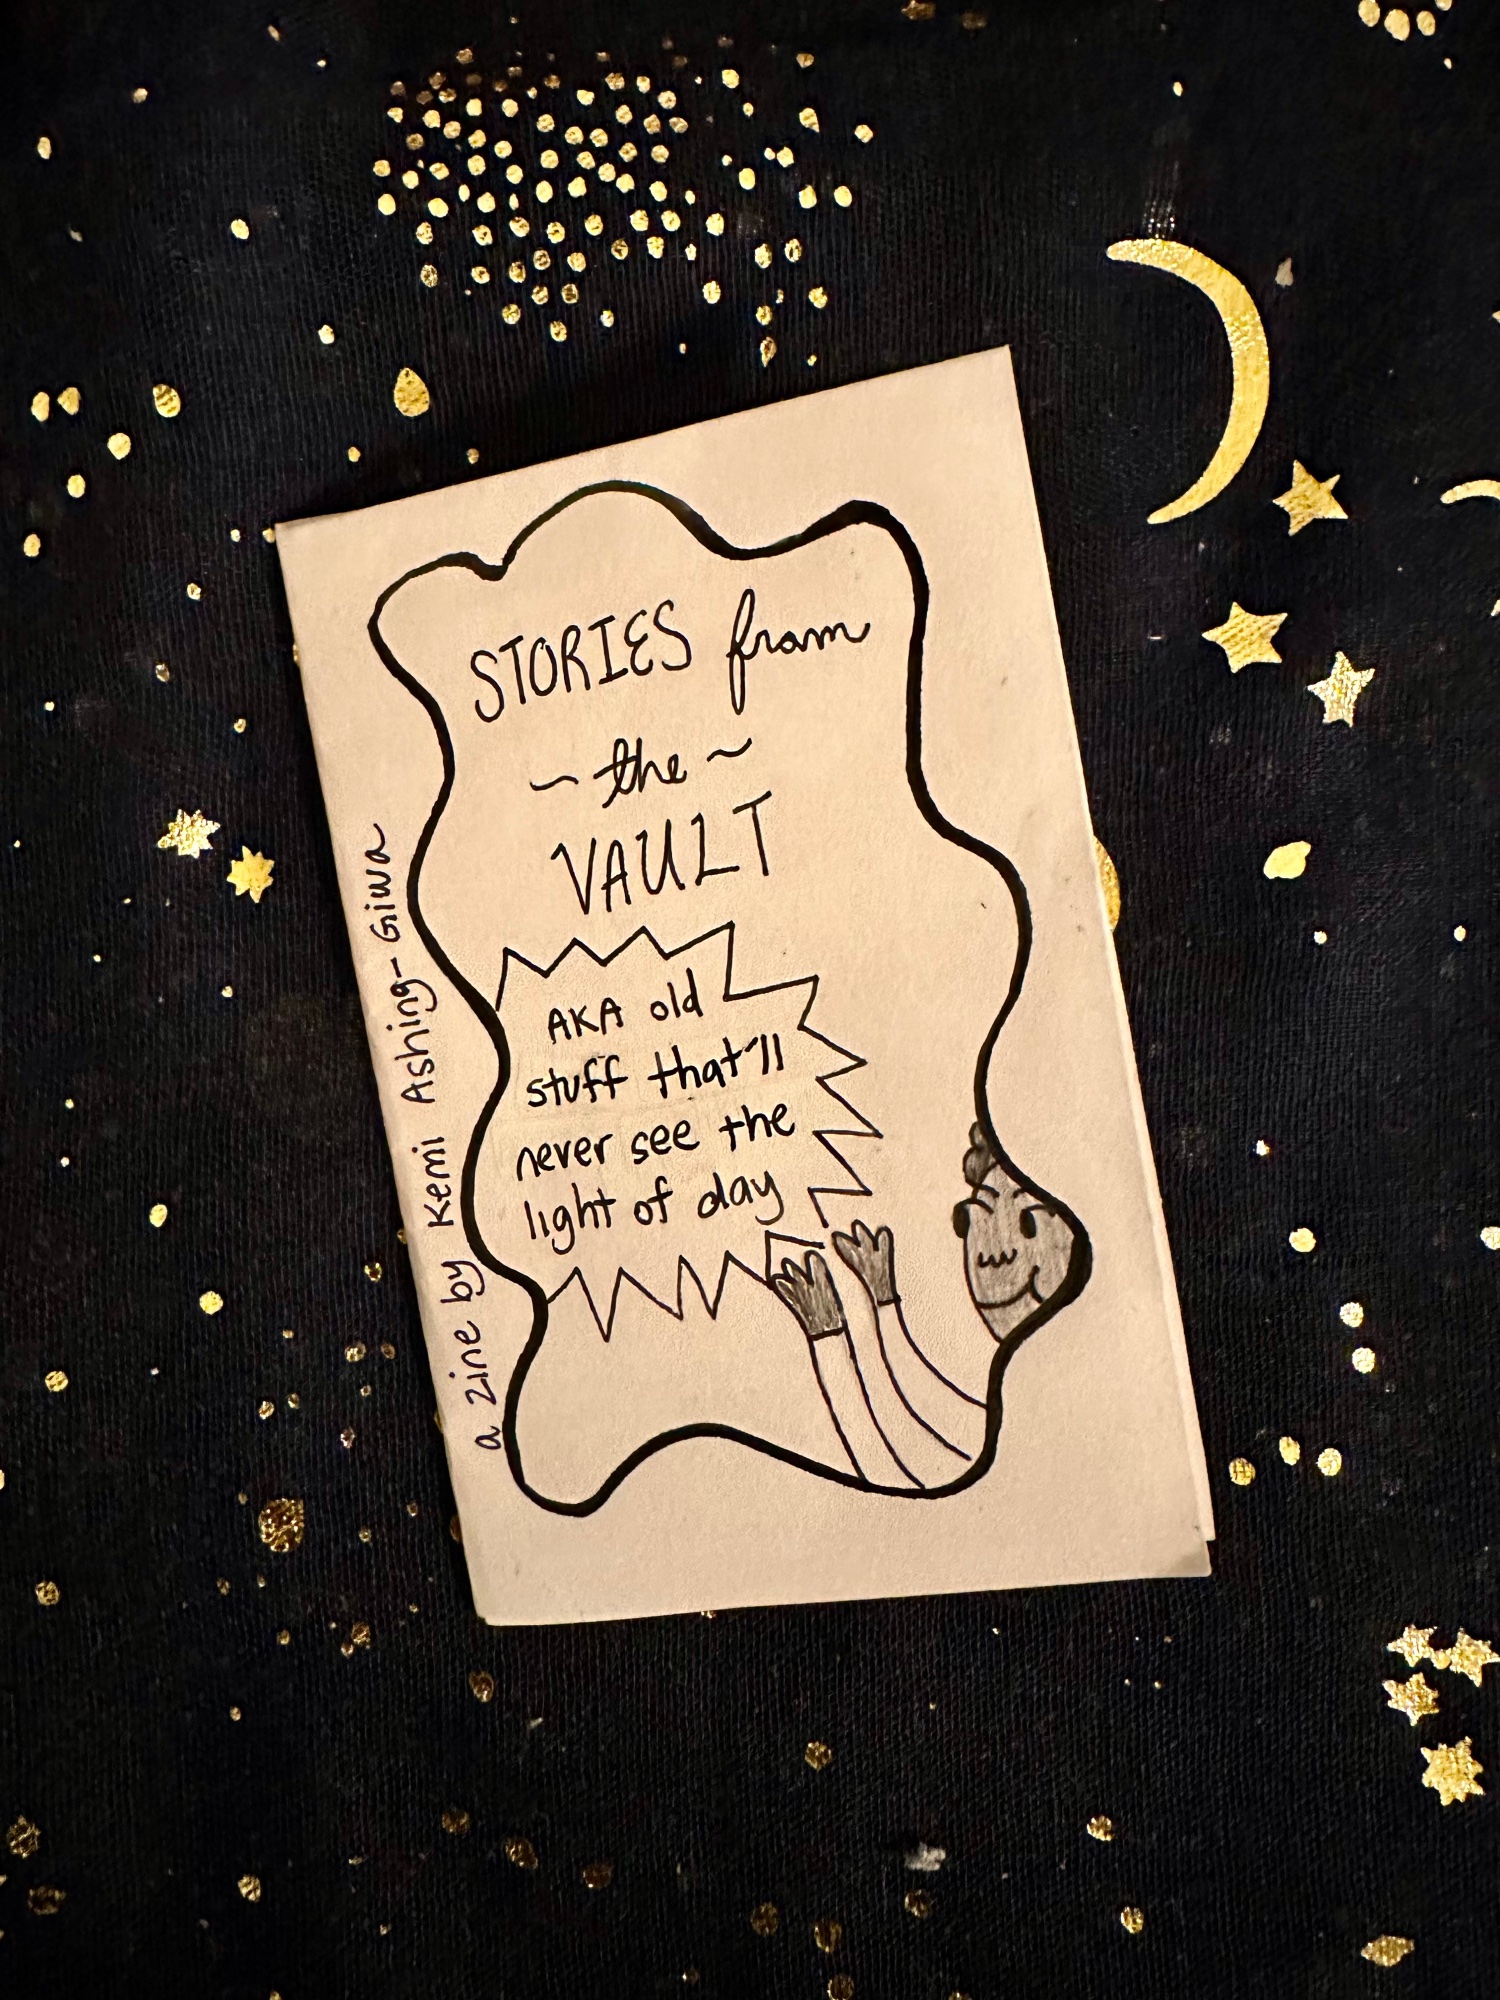 STORIES from
~ the ~
VAULT
AKA old
stuff that'll
never see the
light of day
a zine by Kemi Ashing-Giwa